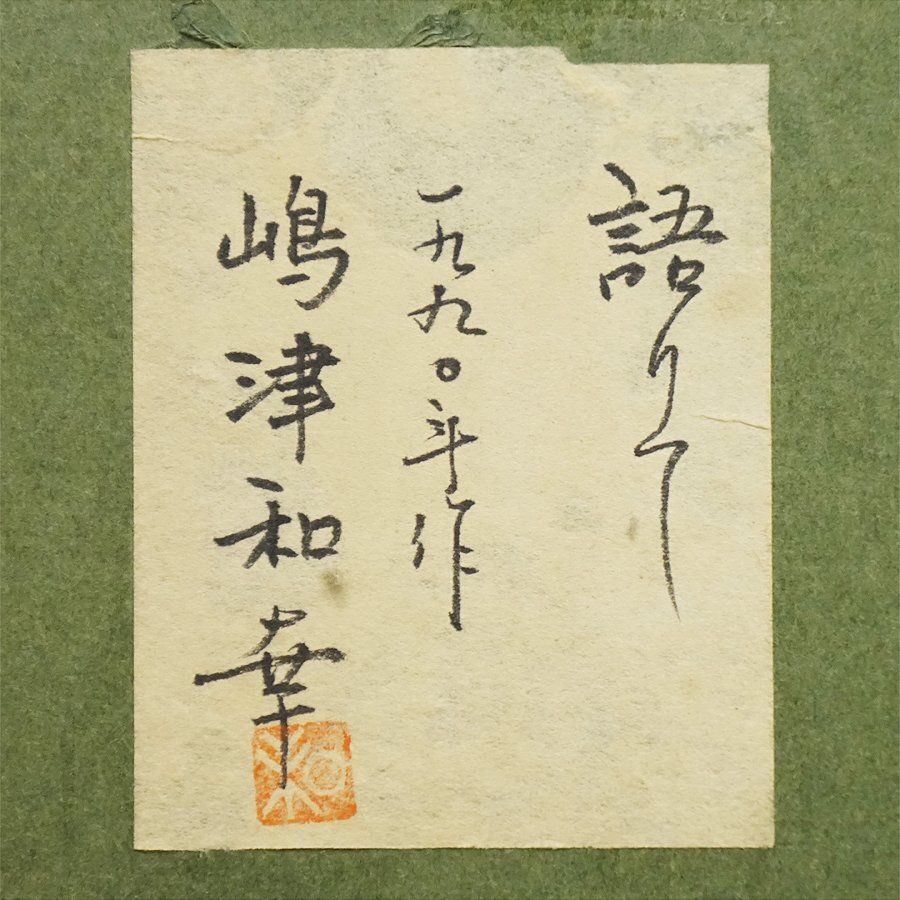 語りて
一九九〇年作
嶋津和幸